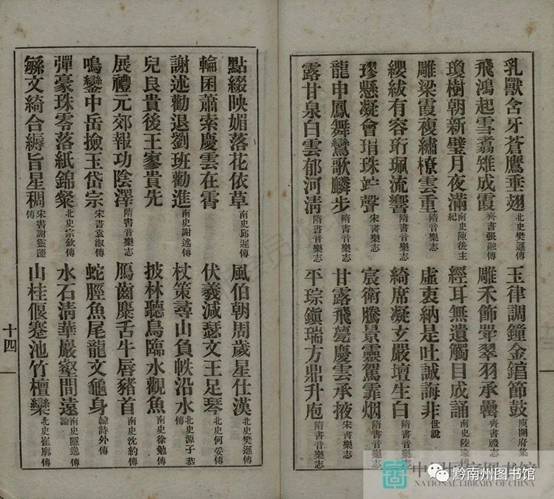 乳獸含牙蒼鷹垂翅 北史樊遜傳 玉律調鐘金錞節鼓 庾開府集
飛鴻起雪翥雉成霞 齊書張融傳 雕禾飾斝翠羽承樽 齊書樂志
瓊樹朝新璧月夜滿 南史陳後主紀 經耳無遺觸目成誦 南史陸傳
雕梁霞複繡橑雲重 隋書音樂志 虛衷納是吐誠誨非 世說
纓紱有容珩珮流響 隋書音樂志 綺席凝玄嚴壇生白 隋書音樂志
璆懸凝會琄珠竚聲 宋書樂志 宸衛騰景靈駕霏烟 隋書音樂志
龍申鳳舞鸞歌麟步 隋書音樂志 甘露飛甍慶雲承掖 宋書樂志
露甘泉白雲郁河清 隋書音樂志 平琮鎮瑞方鼎升庖 隋書音樂志
點綴映媚落花依草 南史邱遲傳 風伯朝周歲星仕漢 北史樊遜傳
輪囷蕭索慶雲在霄 隋書音樂志 伏羲減瑟文王足琴 北史何妥傳
謝述勸退劉班勸進 南史謝述傳 杖策尋山負帙沿水 北史源子恭傳
兒良貴後王家貴先 披林聽鳥臨水觀魚 南史徐勉傳
展禮元郊報功陰澤 隋書音樂志 鴈齒麋舌牛脣豬首 南史沈約傳
鳴鑾中岳撿玉岱宗 宋書袁淑傳 蛇脛魚尾龍文龜身 韓詩外傳
彈豪珠零落紙錦粲 北史宗欽傳 水石清華巖壑間遠
緜文綺合縟旨星稠 宋書謝靈運傳 山桂偃蹇池竹檀欒 北史崔廓傳
十四
中國國家圖書館
NATIONAL LIBRARY OF CHINA
黔南州图书馆